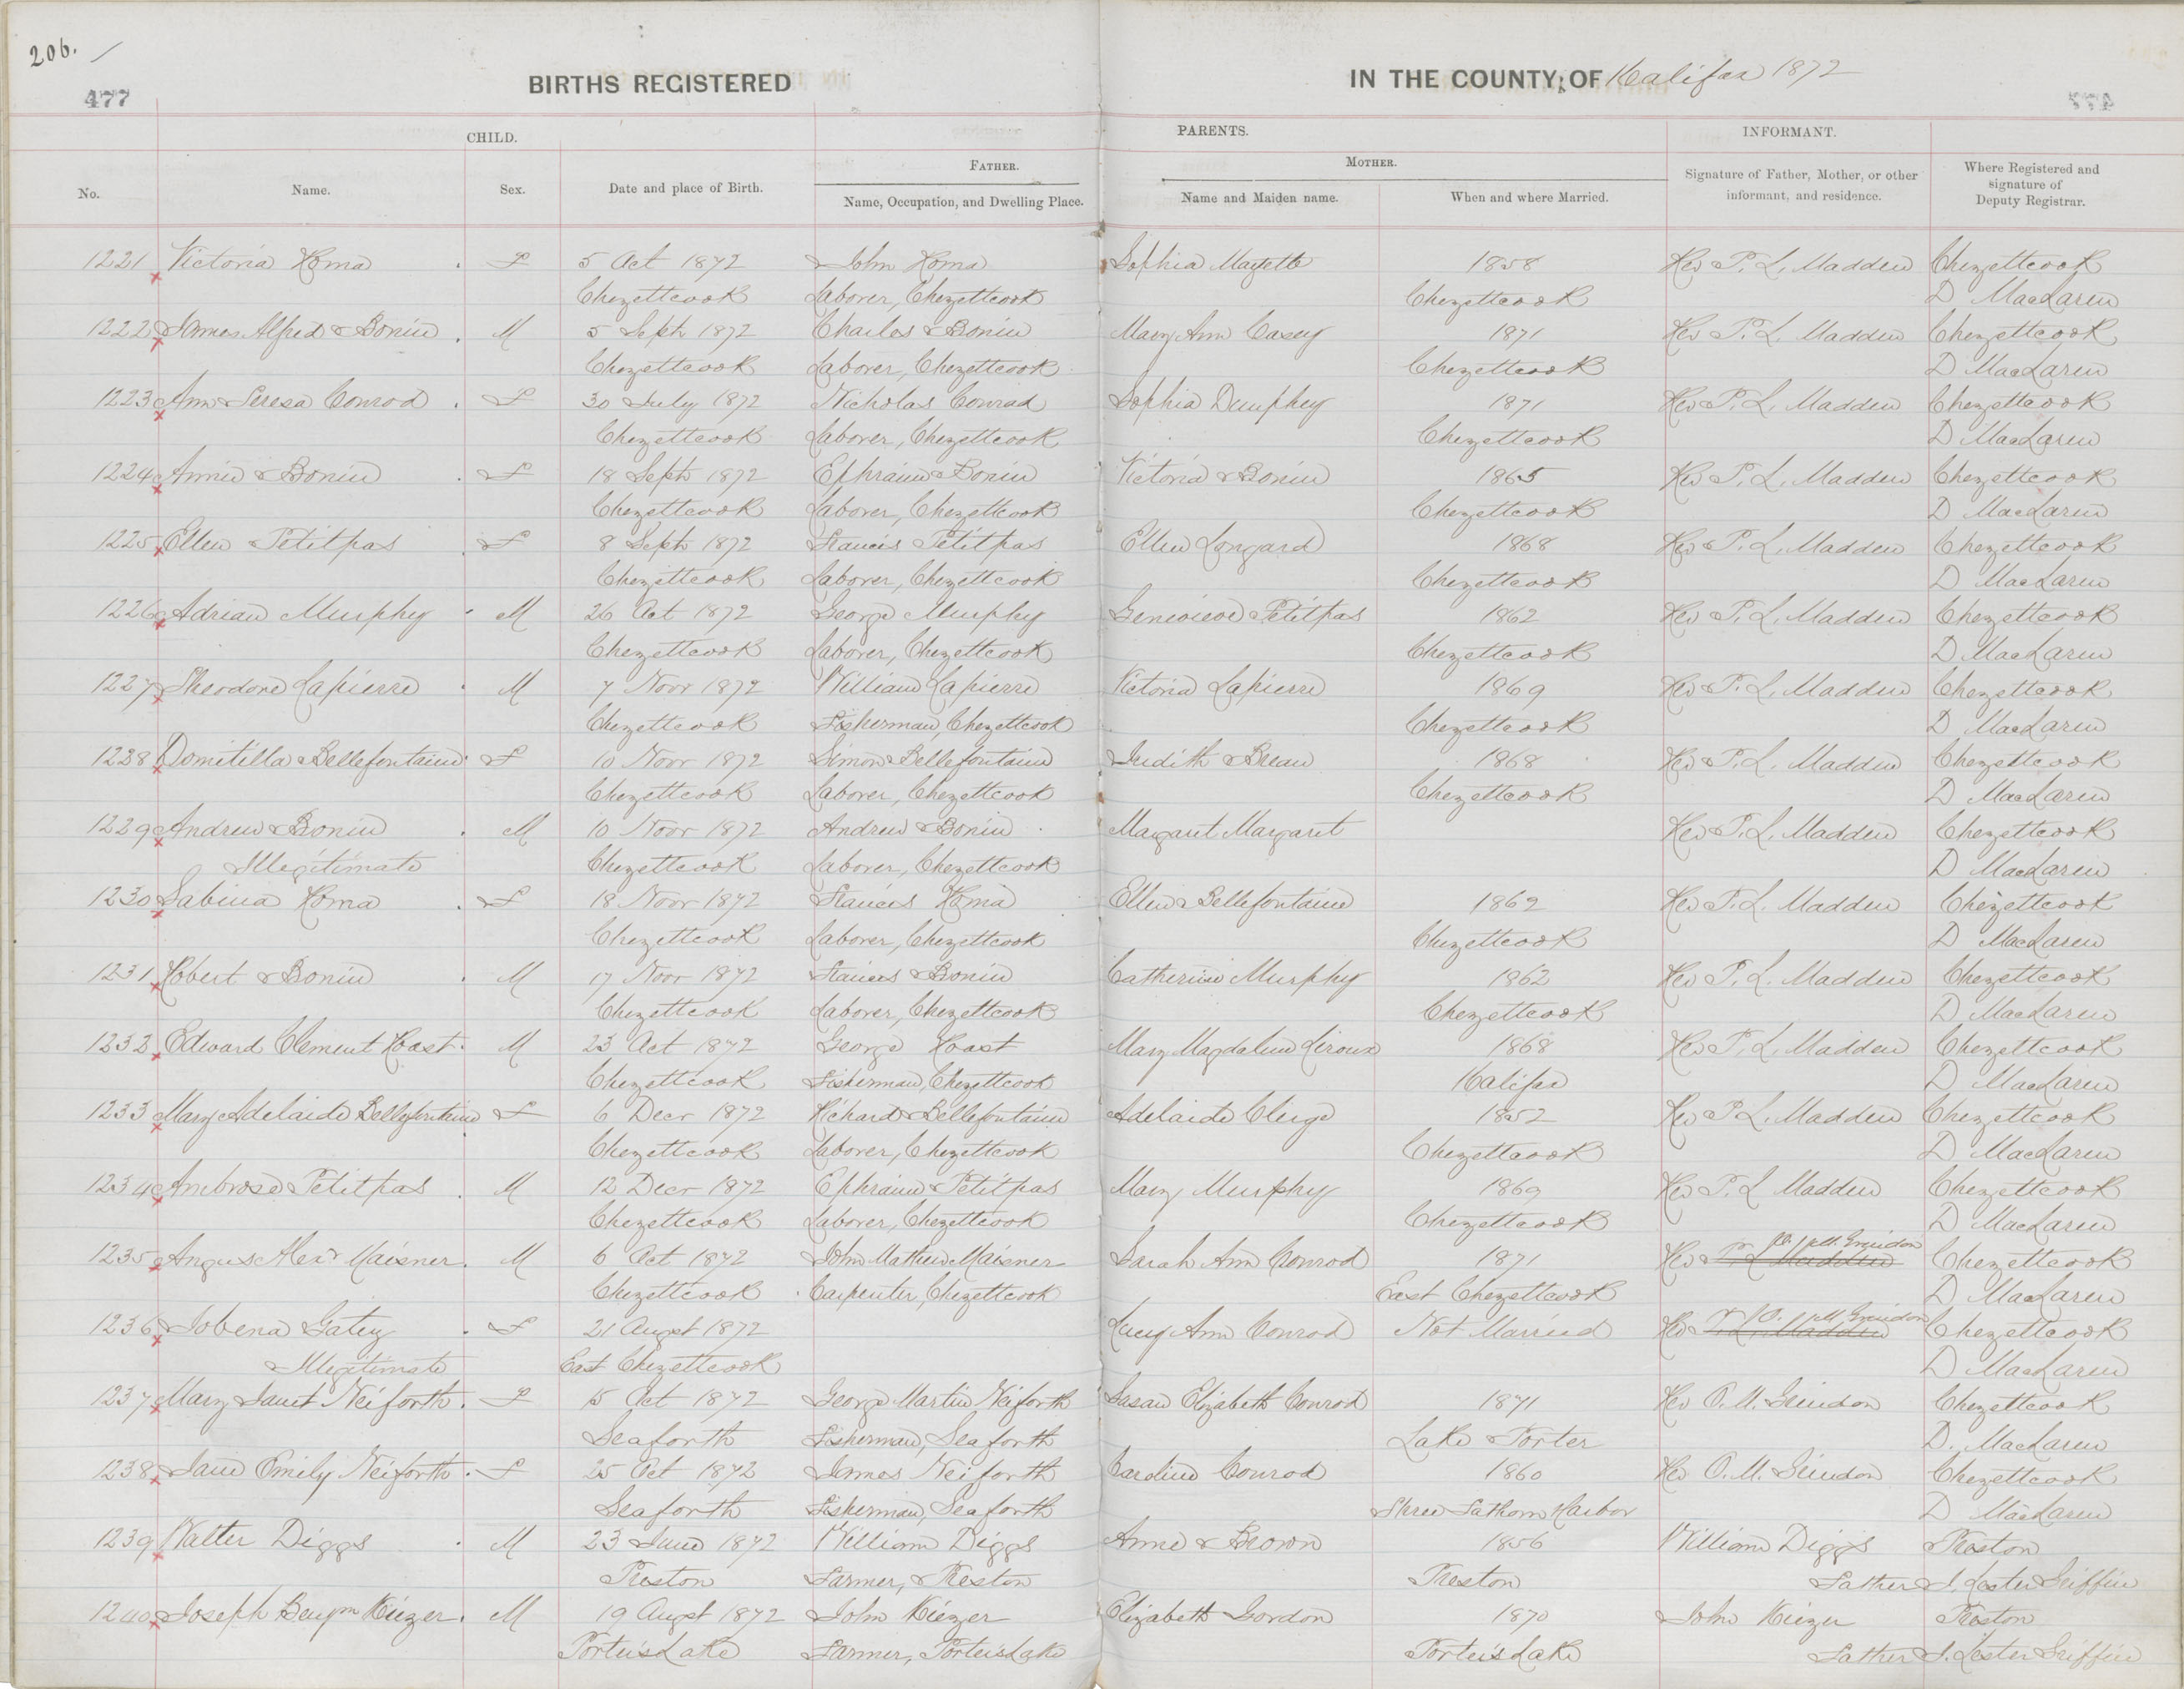 206.
477
BIRTHS REGISTERED
IN THE COUNTY OF Halifax 1872
CHILD.
PARENTS.
INFORMANT.
No.
Name.
Sex.
Date and place of Birth.
FATHER.
Name, Occupation, and Dwelling Place.
MOTHER.
Name and Maiden name.
When and where Married.
Signature of Father, Mother, or other informant, and residence.
Where Registered and signature of Deputy Registrar.
1221 Victoria Roma F 5 Oct 1872 John Roma Sophia Mayette 1858 Rev P. L. Madden Chezettcook
Chezettcook Laborer, Chezettcook Chezettcook D MacLaren
1222 James Alfred Bonin M 5 Sept 1872 Charles Bonin Mary Ann Casey 1871 Rev P. L. Madden Chezettcook
Chezettcook Laborer, Chezettcook Chezettcook D MacLaren
1223 Ann Teresa Conrod F 30 July 1872 Nicholas Conrad Sophia Dunphey 1871 Rev P. L. Madden Chezettcook
Chezettcook Laborer, Chezettcook Chezettcook D MacLaren
1224 Annie Bonin F 18 Sept 1872 Ephraim Bonin Victoria Bonin 1865 Rev P. L. Madden Chezettcook
Chezettcook Laborer, Chezettcook Chezettcook D MacLaren
1225 Ellen Petitpas F 8 Sept 1872 Francis Petitpas Ellen Longard 1868 Rev P. L. Madden Chezettcook
Chezettcook Laborer, Chezettcook Chezettcook D MacLaren
1226 Adrian Murphy M 26 Oct 1872 George Murphy Genevieve Petitpas 1862 Rev P. L. Madden Chezettcook
Chezettcook Laborer, Chezettcook Chezettcook D MacLaren
1227 Theodore Lapierre M 7 Novr 1872 William Lapierre Victoria Lapierre 1869 Rev P. L. Madden Chezettcook
Chezettcook Fisherman, Chezettcook Chezettcook D MacLaren
1228 Domitilla Bellefontaine F 10 Novr 1872 Simon Bellefontaine Judith Breau 1868 Rev P. L. Madden Chezettcook
Chezettcook Laborer, Chezettcook Chezettcook D MacLaren
1229 Andrew Bonin M 10 Novr 1872 Andrew Bonin Margaret Margaret Rev P. L. Madden Chezettcook
Illegitimate Chezettcook Laborer, Chezettcook D MacLaren
1230 Sabina Roma F 18 Novr 1872 Francis Roma Ellen Bellefontaine 1862 Rev P. L. Madden Chezettcook
Chezettcook Laborer, Chezettcook Chezettcook D MacLaren
1231 Robert Bonin M 17 Novr 1872 Francis Bonin Catherine Murphy 1862 Rev P. L. Madden Chezettcook
Chezettcook Laborer, Chezettcook Chezettcook D MacLaren
1232 Edward Clement Roast M 23 Oct 1872 George Roast Mary Magdalene Liroux 1868 Rev P. L. Madden Chezettcook
Chezettcook Fisherman, Chezettcook Halifax D MacLaren
1233 Mary Adelaide Bellefontaine F 6 Decr 1872 Richard Bellefontaine Adelaide 1852 Rev P. L. Madden Chezettcook
Chezettcook Laborer, Chezettcook Chezettcook D MacLaren
1234 Ambrose Petitpas M 12 Decr 1872 Ephraim Petitpas Mary Murphy 1869 Rev P. L Madden Chezettcook
Chezettcook Laborer, Chezettcook Chezettcook D MacLaren
1235 Angus Alexr Maisner M 6 Oct 1872 John Mathew Maisner Sarah Ann Conrod 1871 Rev P. L Madden O. M. Grindon Chezettcook
Chezettcook Carpenter, Chezettcook East Chezettcook D MacLaren
1236 Jobena Gatey F 21 Augst 1872 Lucy Ann Conrod Not Married Rev P. L. Madden O. M. Grindon Chezettcook
Illegitimate East Chezettcook D MacLaren
1237 Mary Janet Neiforth F 15 Oct 1872 George Martin Neiforth Susan Elizabeth Conrod 1871 Rev O. M. Grindon Chezettcook
Seaforth Fisherman, Seaforth Lake Porter D. MacLaren
1238 Jane Emily Neiforth F 25 Oct 1872 James Neiforth Caroline Conrod 1860 Rev O. M. Grindon Chezettcook
Seaforth Fisherman, Seaforth Three Fathom Harbor D MacLaren
1239 Walter Diggs M 23 June 1872 William Diggs Anne Brown 1856 William Diggs Preston
Preston Farmer, Preston Preston Father J. Lester Griffin
1240 Joseph Benjm Kiezer M 19 Augst 1872 John Kiezer Elizabeth Gordon 1870 John Kiezer Preston
Porter's Lake Farmer, Porter's Lake Porter's Lake Father J. Lester Griffin